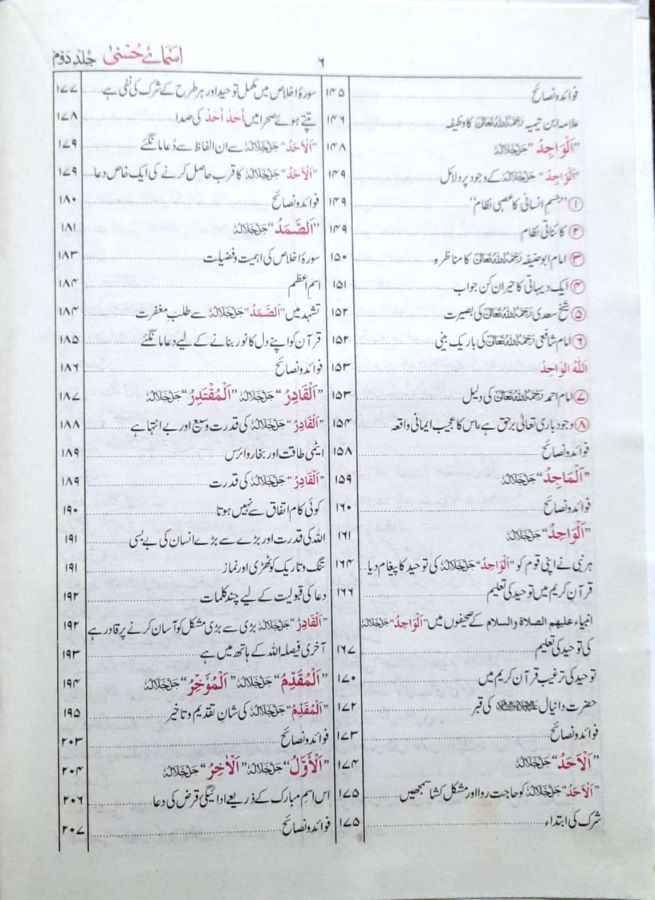 اسمائے حسنیٰ جلد دوم
۶
فوائد و نصائح ۱۴۵
علامہ ابن تیمیہ رحمہ اللہ تعالیٰ کا وظیفہ ۱۴۶
”اَلْوَاجِدُ“ جل جلالہ ۱۴۸
”اَلْوَاجِدُ“ جل جلالہ کے وجود پر دلائل ۱۴۹
① ”جسم انسانی کا عصبی نظام“ ۱۴۹
② کائناتی نظام ۱۴۹
③ امام ابوحنیفہ رحمہ اللہ تعالیٰ کا مناظرہ ۱۵۰
④ ایک دیہاتی کا حیران کن جواب ۱۵۱
⑤ شیخ سعدی رحمہ اللہ تعالیٰ کی بصیرت ۱۵۲
⑥ امام شافعی رحمہ اللہ تعالیٰ کی باریک بینی ۱۵۲
اللہُ الواجدُ ۱۵۳
⑦ امام احمد رحمہ اللہ تعالیٰ کی دلیل ۱۵۳
⑧ وجود باری تعالیٰ برحق ہے، اس کا عجیب ایمانی واقعہ ۱۵۴
فوائد و نصائح ۱۵۸
”اَلْمَاجِدُ“ جل جلالہ ۱۵۹
فوائد و نصائح ۱۶۰
”اَلْوَاحِدُ“ جل جلالہ ۱۶۱
ہر نبی نے اپنی قوم کو ”اَلْوَاحِدُ“ جل جلالہ کی توحید کا پیغام دیا ۱۶۴
قرآن کریم میں توحید کی تعلیم ۱۶۶
انبیاء علیہم الصلاۃ والسلام کے صحیفوں میں ”اَلْوَاحِدُ“ جل جلالہ
کی توحید کی تعلیم ۱۶۷
توحید کی ترغیب قرآن کریم میں ۱۷۰
حضرت دانیال کی قبر ۱۷۲
فوائد و نصائح ۱۷۳
”اَلْاَحَدُ“ جل جلالہ ۱۷۴
”اَلْاَحَدُ“ جل جلالہ کو حاجت روا اور مشکل کشا سمجھیں ۱۷۵
شرک کی ابتداء ۱۷۵
سورۂ اخلاص میں مکمل توحید اور ہر طرح کے شرک کی نفی ہے ۱۷۷
تپتے ہوئے صحرا میں اَحَدٌ اَحَدٌ کی صدا ۱۷۸
”اَلْاَحَدُ“ جل جلالہ سے ان الفاظ سے دُعا مانگئے ۱۷۹
”اَلْاَحَدُ“ جل جلالہ کا قرب حاصل کرنے کی ایک خاص دعا ۱۷۹
فوائد و نصائح ۱۸۰
”اَلصَّمَدُ“ جل جلالہ ۱۸۱
سورۂ اخلاص کی اہمیت و فضیلت ۱۸۳
اسم اعظم ۱۸۴
تشہد میں ”اَلصَّمَدُ“ جل جلالہ سے طلب مغفرت ۱۸۴
قرآن کو اپنے دل کا نور بنانے کے لیے دعا مانگئے ۱۸۵
فوائد و نصائح ۱۸۶
”اَلْقَادِرُ“ جل جلالہ ”اَلْمُقْتَدِرُ“ جل جلالہ ۱۸۷
”اَلْقَادِرُ“ جل جلالہ کی قدرت وسیع اور بے انتہا ہے ۱۸۸
ایٹمی طاقت اور بخار وائرس ۱۸۹
”اَلْقَادِرُ“ جل جلالہ کی قدرت ۱۸۹
کوئی کام اتفاق سے نہیں ہوتا ۱۹۰
اللہ کی قدرت اور بڑے سے بڑے انسان کی بے بسی ۱۹۱
تنگ و تاریک کوٹھڑی اور نماز ۱۹۱
دعا کی قبولیت کے لیے چند کلمات ۱۹۲
”اَلْقَادِرُ“ جل جلالہ بڑی سے بڑی مشکل کو آسان کرنے پر قادر ہے ۱۹۲
آخری فیصلہ اللہ کے ہاتھ میں ہے ۱۹۳
”اَلْمُقَدِّمُ“ جل جلالہ ”اَلْمُؤَخِّرُ“ جل جلالہ ۱۹۴
”اَلْمُقَدِّمُ“ جل جلالہ کی شان تقدیم و تاخیر ۱۹۵
فوائد و نصائح ۲۰۳
”اَلْاَوَّلُ“ جل جلالہ ”اَلْاٰخِرُ“ جل جلالہ ۲۰۴
اس اسم مبارک کے ذریعے ادائیگی قرض کی دعا ۲۰۶
فوائد و نصائح ۲۰۷